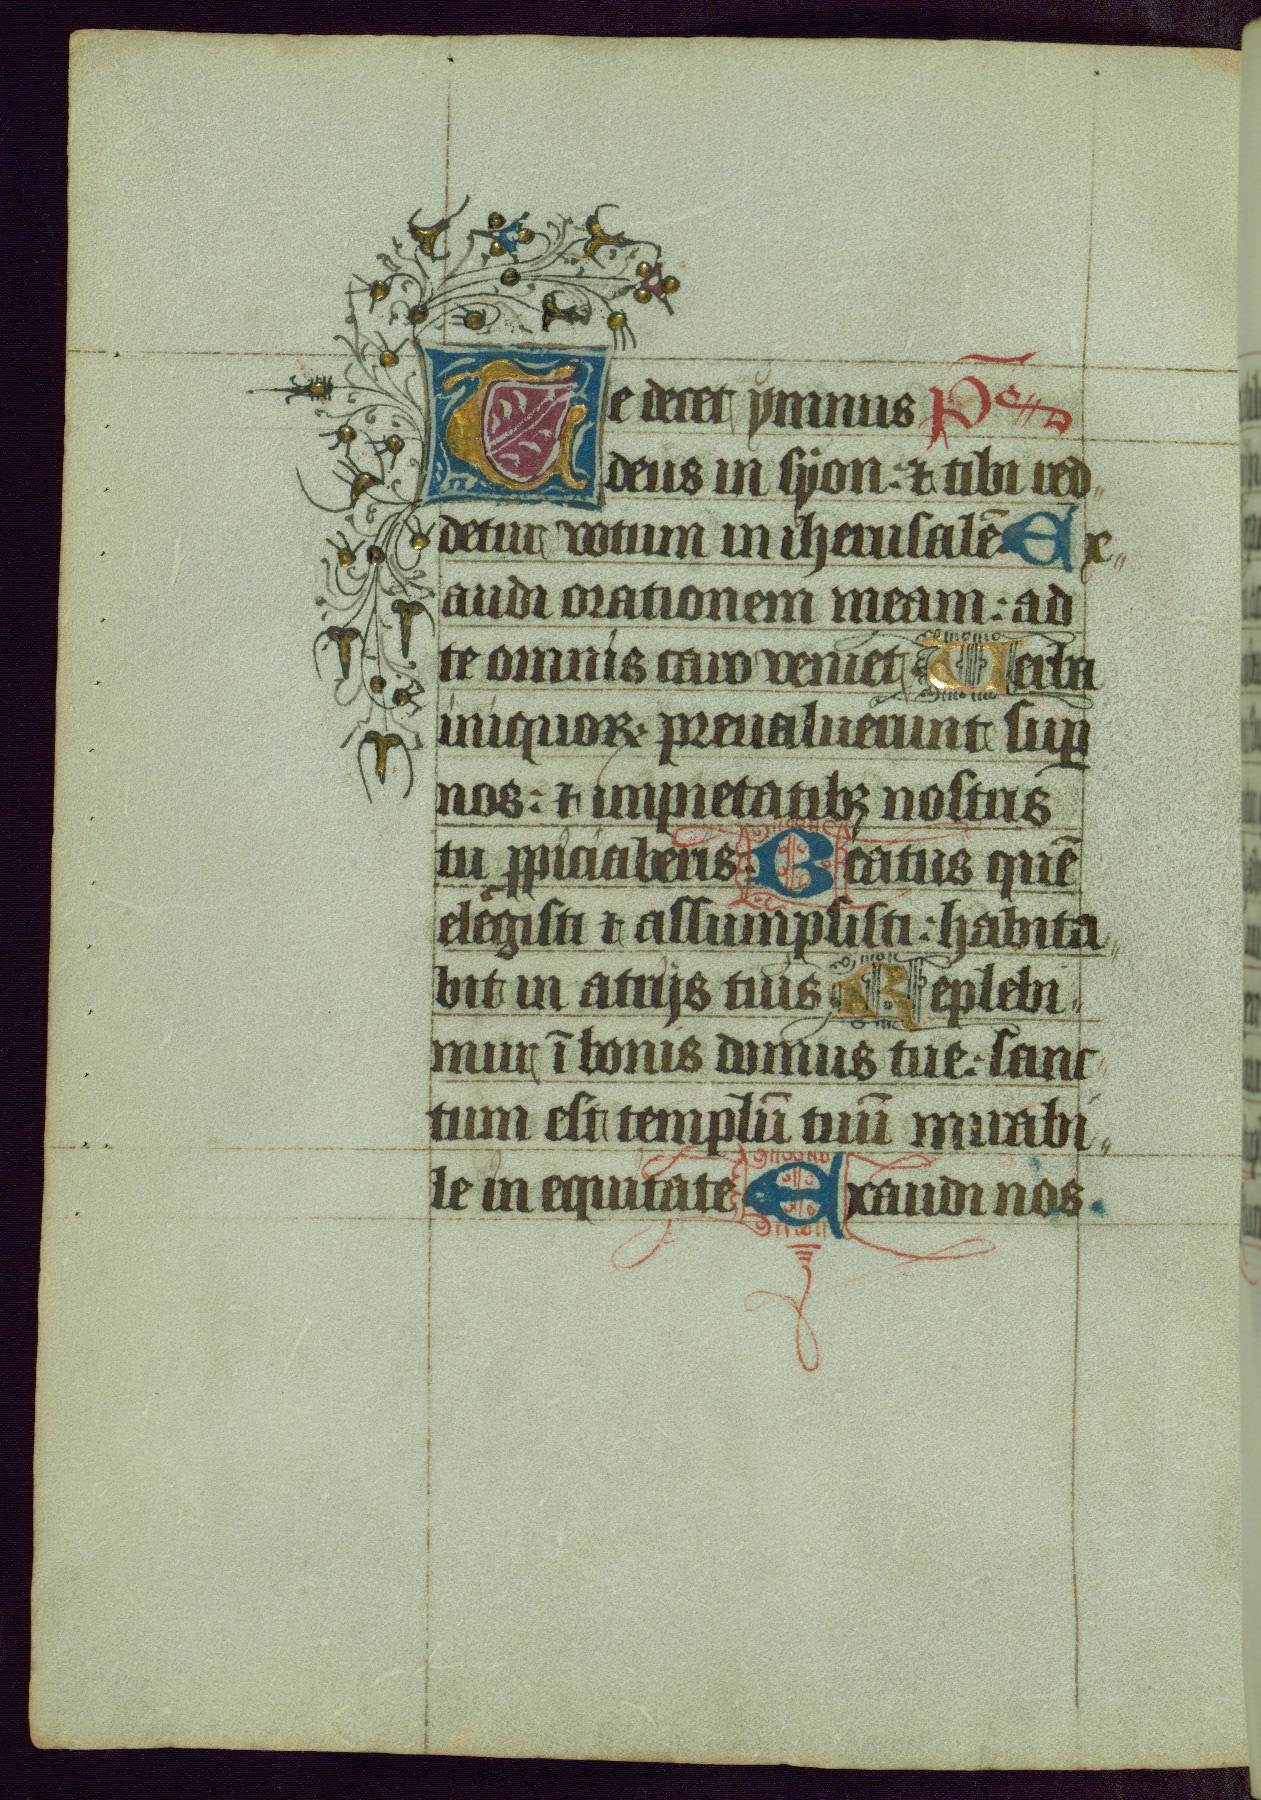 Te decet ymnus Ps
deus in syon: ⁊ tibi red„
detur votum in iherusalē Ex„
audi orationem meam: ad
te omnis caro veniet Verba
iniquoꝝ preualuerunt suꝑ
nos: ⁊ impietatibꝫ nostris
tu ꝓpiciaberis. Beatus quē
elegisti ⁊ assumpsisti: habita„
bit in atrijs tuis Replebi„
mur ī bonis domus tue: sanc„
tum est templū tuū mirabi„
le in equitate Exaudi nos